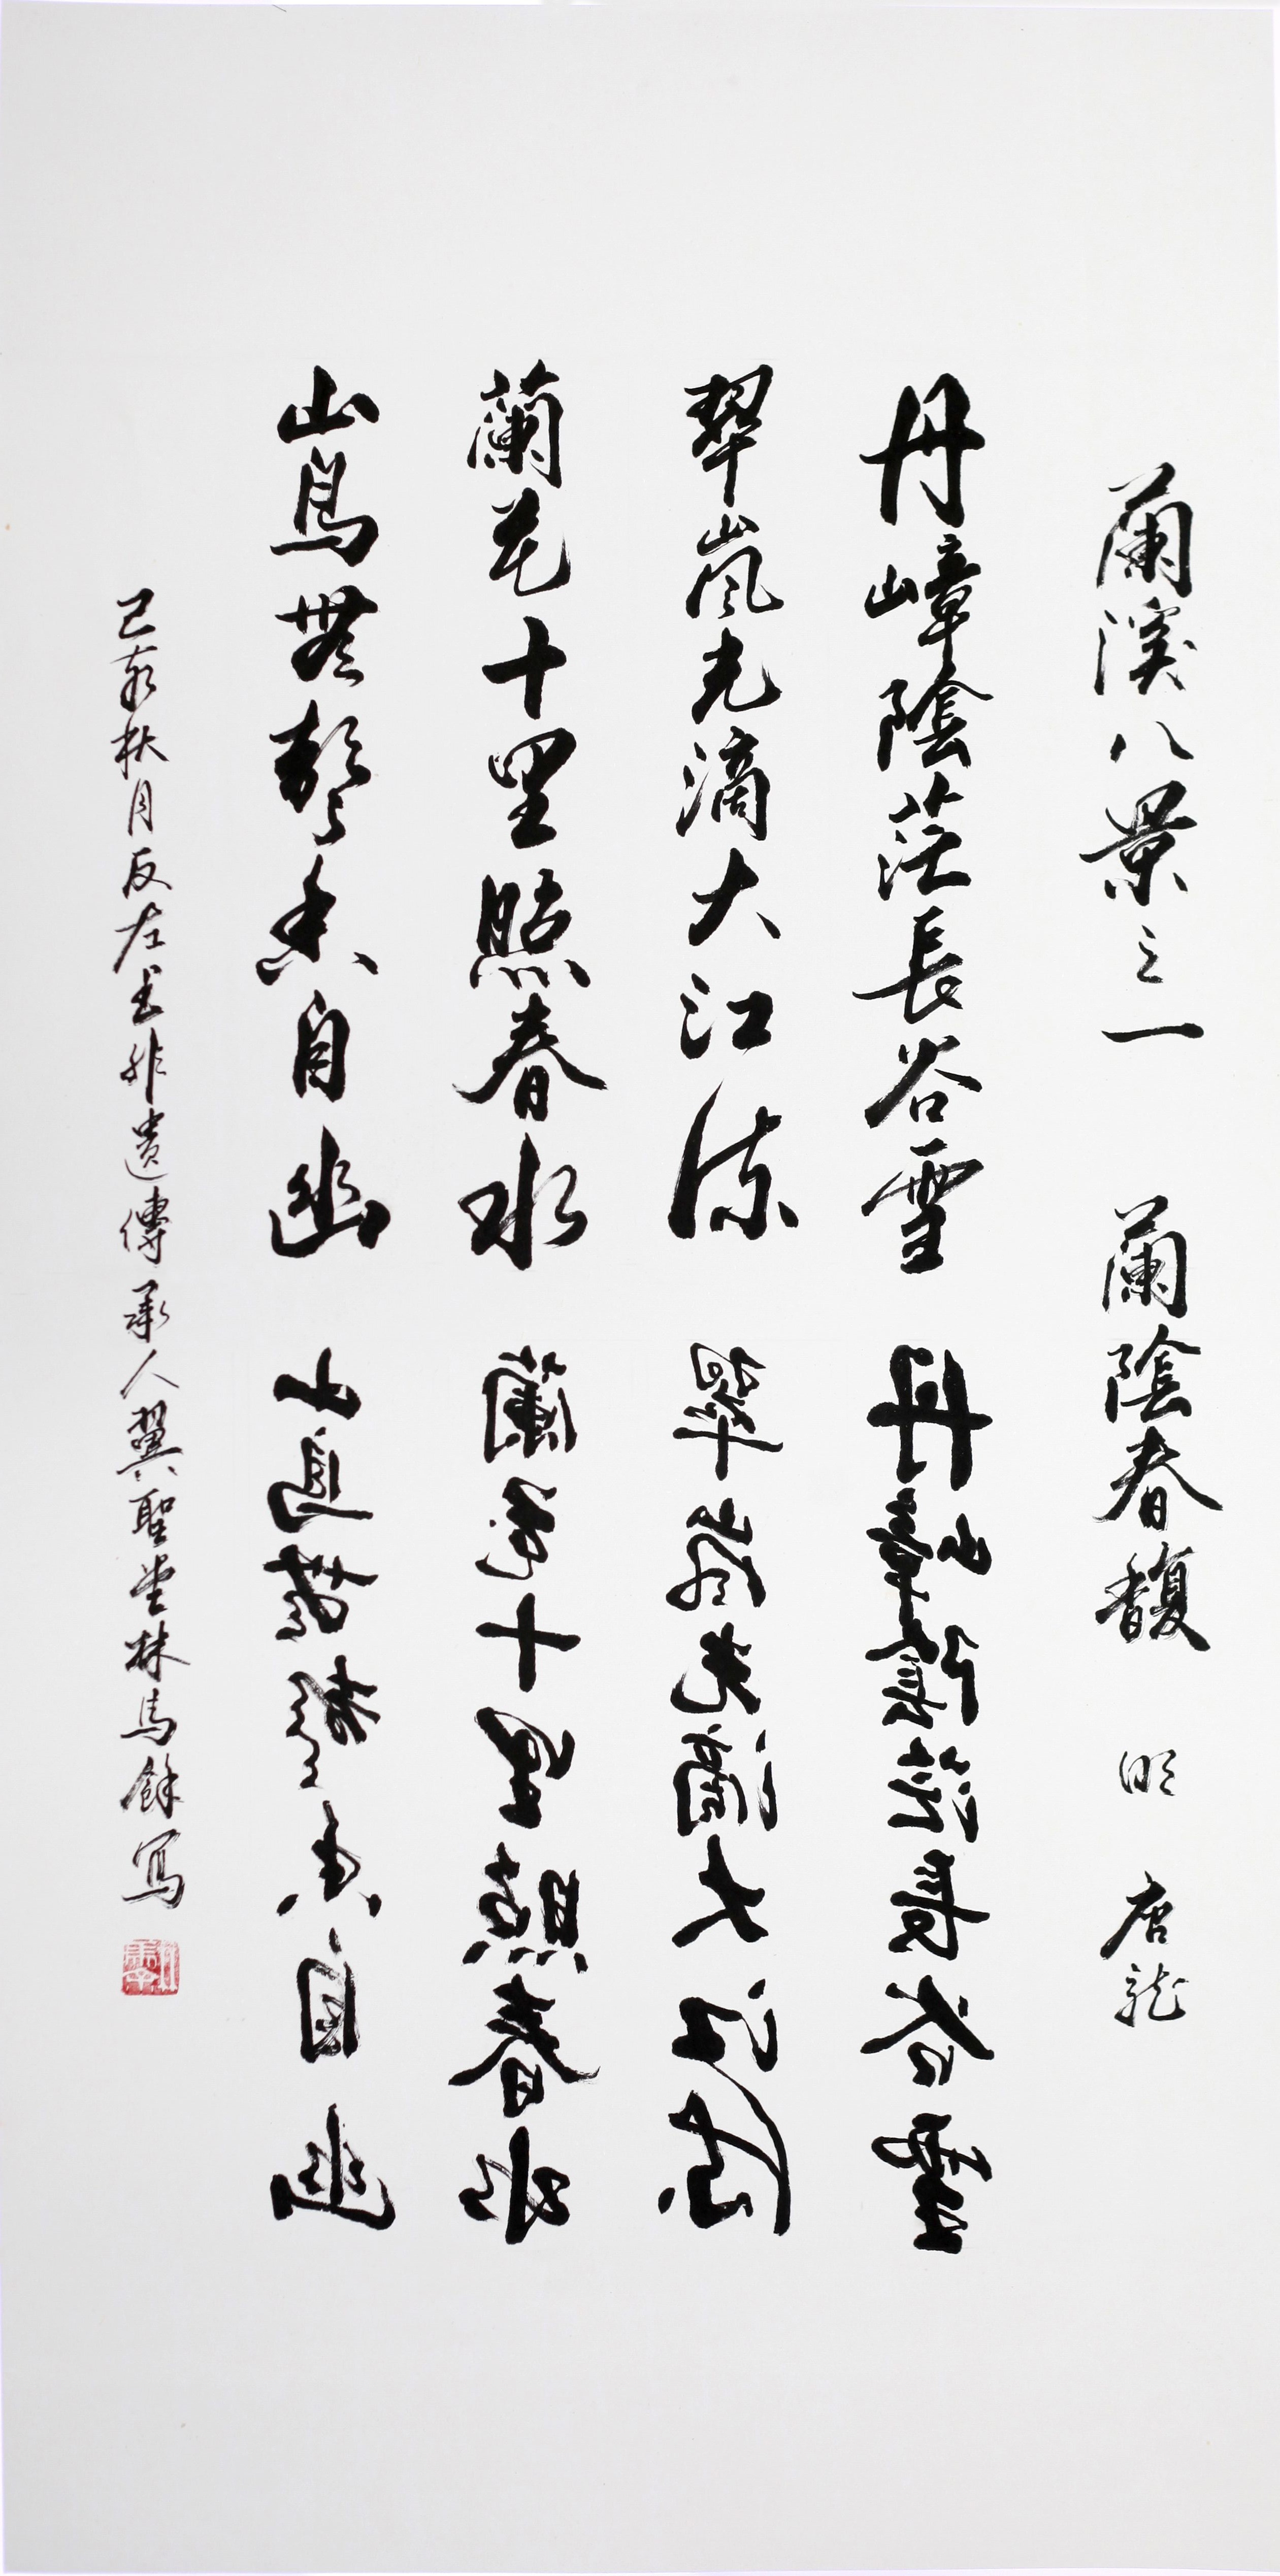 蘭溪八景之一 蘭陰春馥 明 唐龍
丹嶂陰茫長谷雪 丹嶂陰茫長谷雪
翠嵐光滴大江流 翠嵐光滴大江流
蘭花十里照春水 蘭花十里照春水
山鳥無聲香自幽 山鳥無聲香自幽
己亥秋月反左書非遺傳承人翼聖堂林馬餘寫